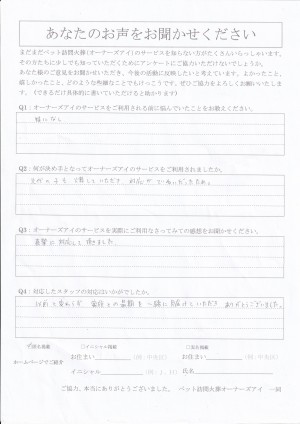 あなたのお声をお聞かせください
まだまだペット訪問火葬(オーナーズアイ)のサービスを知らない方がたくさんいらっしゃいます。
その方たちに少しでも知っていただくためにアンケートにご協力いただけないでしょうか。
あなた様のご意見をお聞かせいただき、今後の活動に反映したいと考えています。よかったこと、
嬉しかったこと、どのような些細なことでもけっこうです。ぜひご協力をよろしくお願いいたしま
す。(できるだけ具体的に書いていただけると助かります)
Q1:オーナーズアイのサービスをご利用される前に悩んでいたことをお教えください。
特になし
Q2:何が決め手となってオーナーズアイのサービスをご利用されましたか。
対応がていねいだったため。
Q3:オーナーズアイのサービスを実際にご利用なさってみての感想をお聞かせください。
真摯に対応して頂きました。
Q4:対応したスタッフの対応はいかがでしたか。
ありがとうございました。
匿名掲載 □イニシャル掲載 □実名掲載
ホームページでご紹介 お住まい (例:中央区) お住まい (例:中央区)
イニシャル (例:J.H) 氏名
ご協力、本当にありがとうございました。 ペット訪問火葬オーナーズアイ 一同